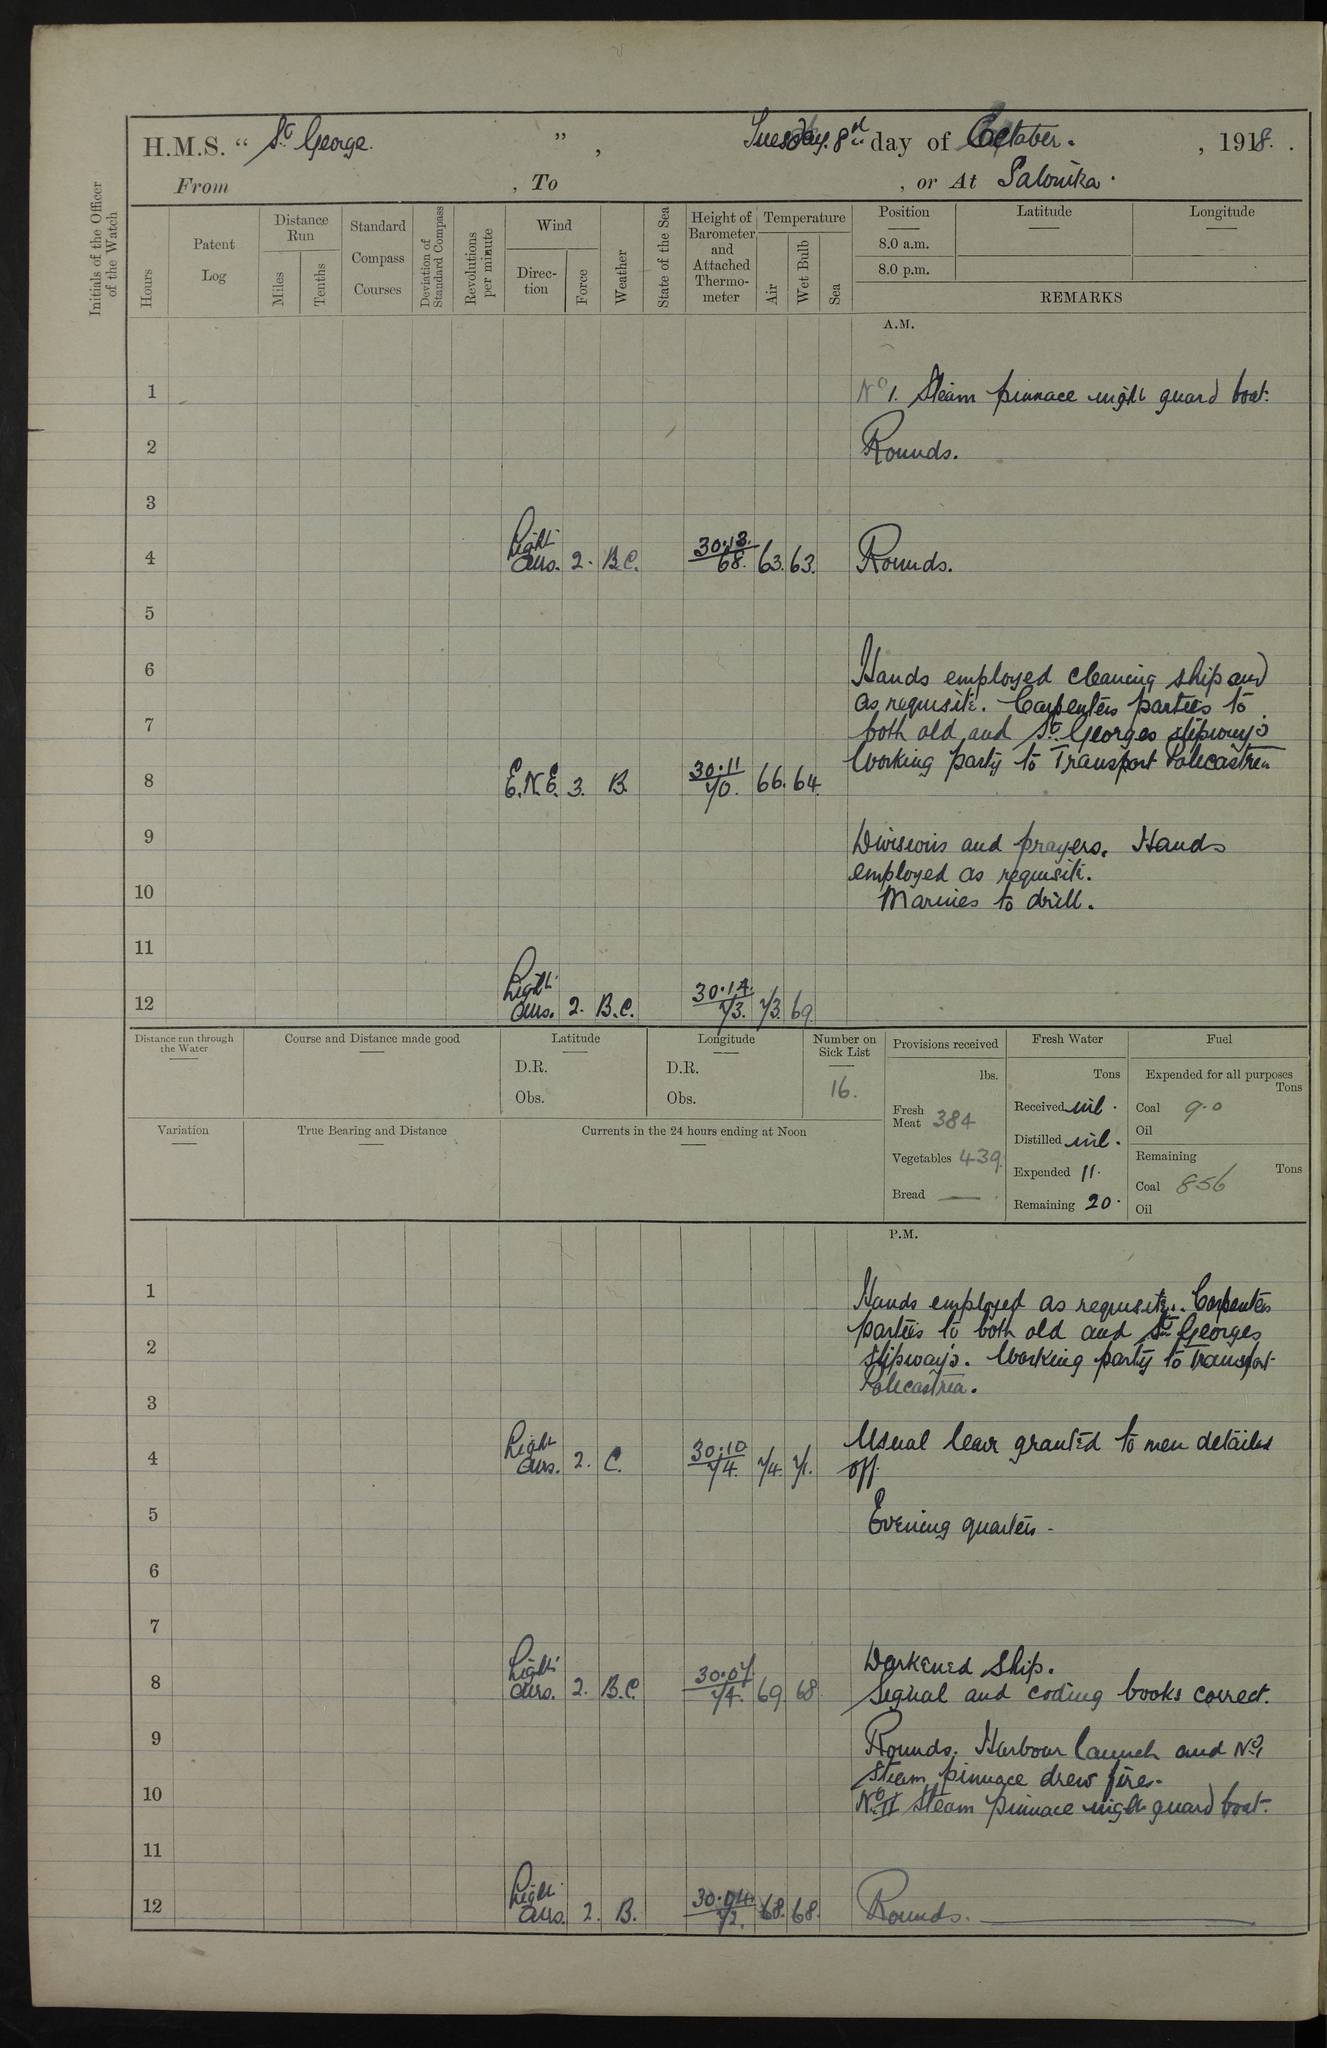 H.M.S. " St George. " , Tuesday. 8th day of October. , 1918.
From , To , or At Salonika.
Initials of the Officer of the Watch
Hours
Patent Log
Distance Run
Miles
Tenths
Standard Compass Courses
Deviation of Standard Compass
Revolutions per minute
Wind
Direc-tion
Force
Weather
State of the Sea
Height of Barometer and Attached Thermo-meter
Temperature
Air
Wet Bulb
Sea
Position Latitude Longitude
8.0 a.m.
8.0 p.m.
REMARKS
A.M.
1 No 1. Steam pinnace night guard boat.
2 Rounds.
3
4 Light airs. 2. B.C. 30.13. 68. 63. 63. Rounds.
5
6 Hands employed cleaning ship and
as requisite. Carpenters parties to
7 both old and St Georges slipway's
Working party to Transport
8 E.N.E. 3. B. 30.11 70. 66. 64.
9 Divisions and prayers. Hands
employed as requisite.
10 Marines to drill.
11
12 Light airs. 2. B.C. 30.14. 73. 73. 69.
Distance run through the Water
Course and Distance made good
Latitude
D.R.
Obs.
Longitude
D.R.
Obs.
Number on Sick List
16.
Provisions received
lbs.
Fresh Meat 384
Vegetables 439.
Bread —
Fresh Water
Tons
Received nil.
Distilled nil.
Expended 11.
Remaining 20.
Fuel
Expended for all purposes
Tons
Coal 9.0
Oil
Remaining
Tons
Coal 856
Oil
Variation
True Bearing and Distance
Currents in the 24 hours ending at Noon
P.M.
1 Hands employed as requisite. Carpenters
parties to both old and St Georges
2 slipway's. Working party to Transport
3
4 Light airs. 2. C. 30.10 74. 74. 71. Usual leave granted to men detailed
off.
5 Evening quarters.
6
7
Darkened Ship.
8 Light airs. 2. B.C. 30.07 74. 69 68 Signal and coding books correct.
9 Rounds. Harbour launch and No 1
steam pinnace drew fires.
10 No II steam pinnace night guard boat.
11
12 Light airs. 2. B. 30.04. 72. 68. 68. Rounds.